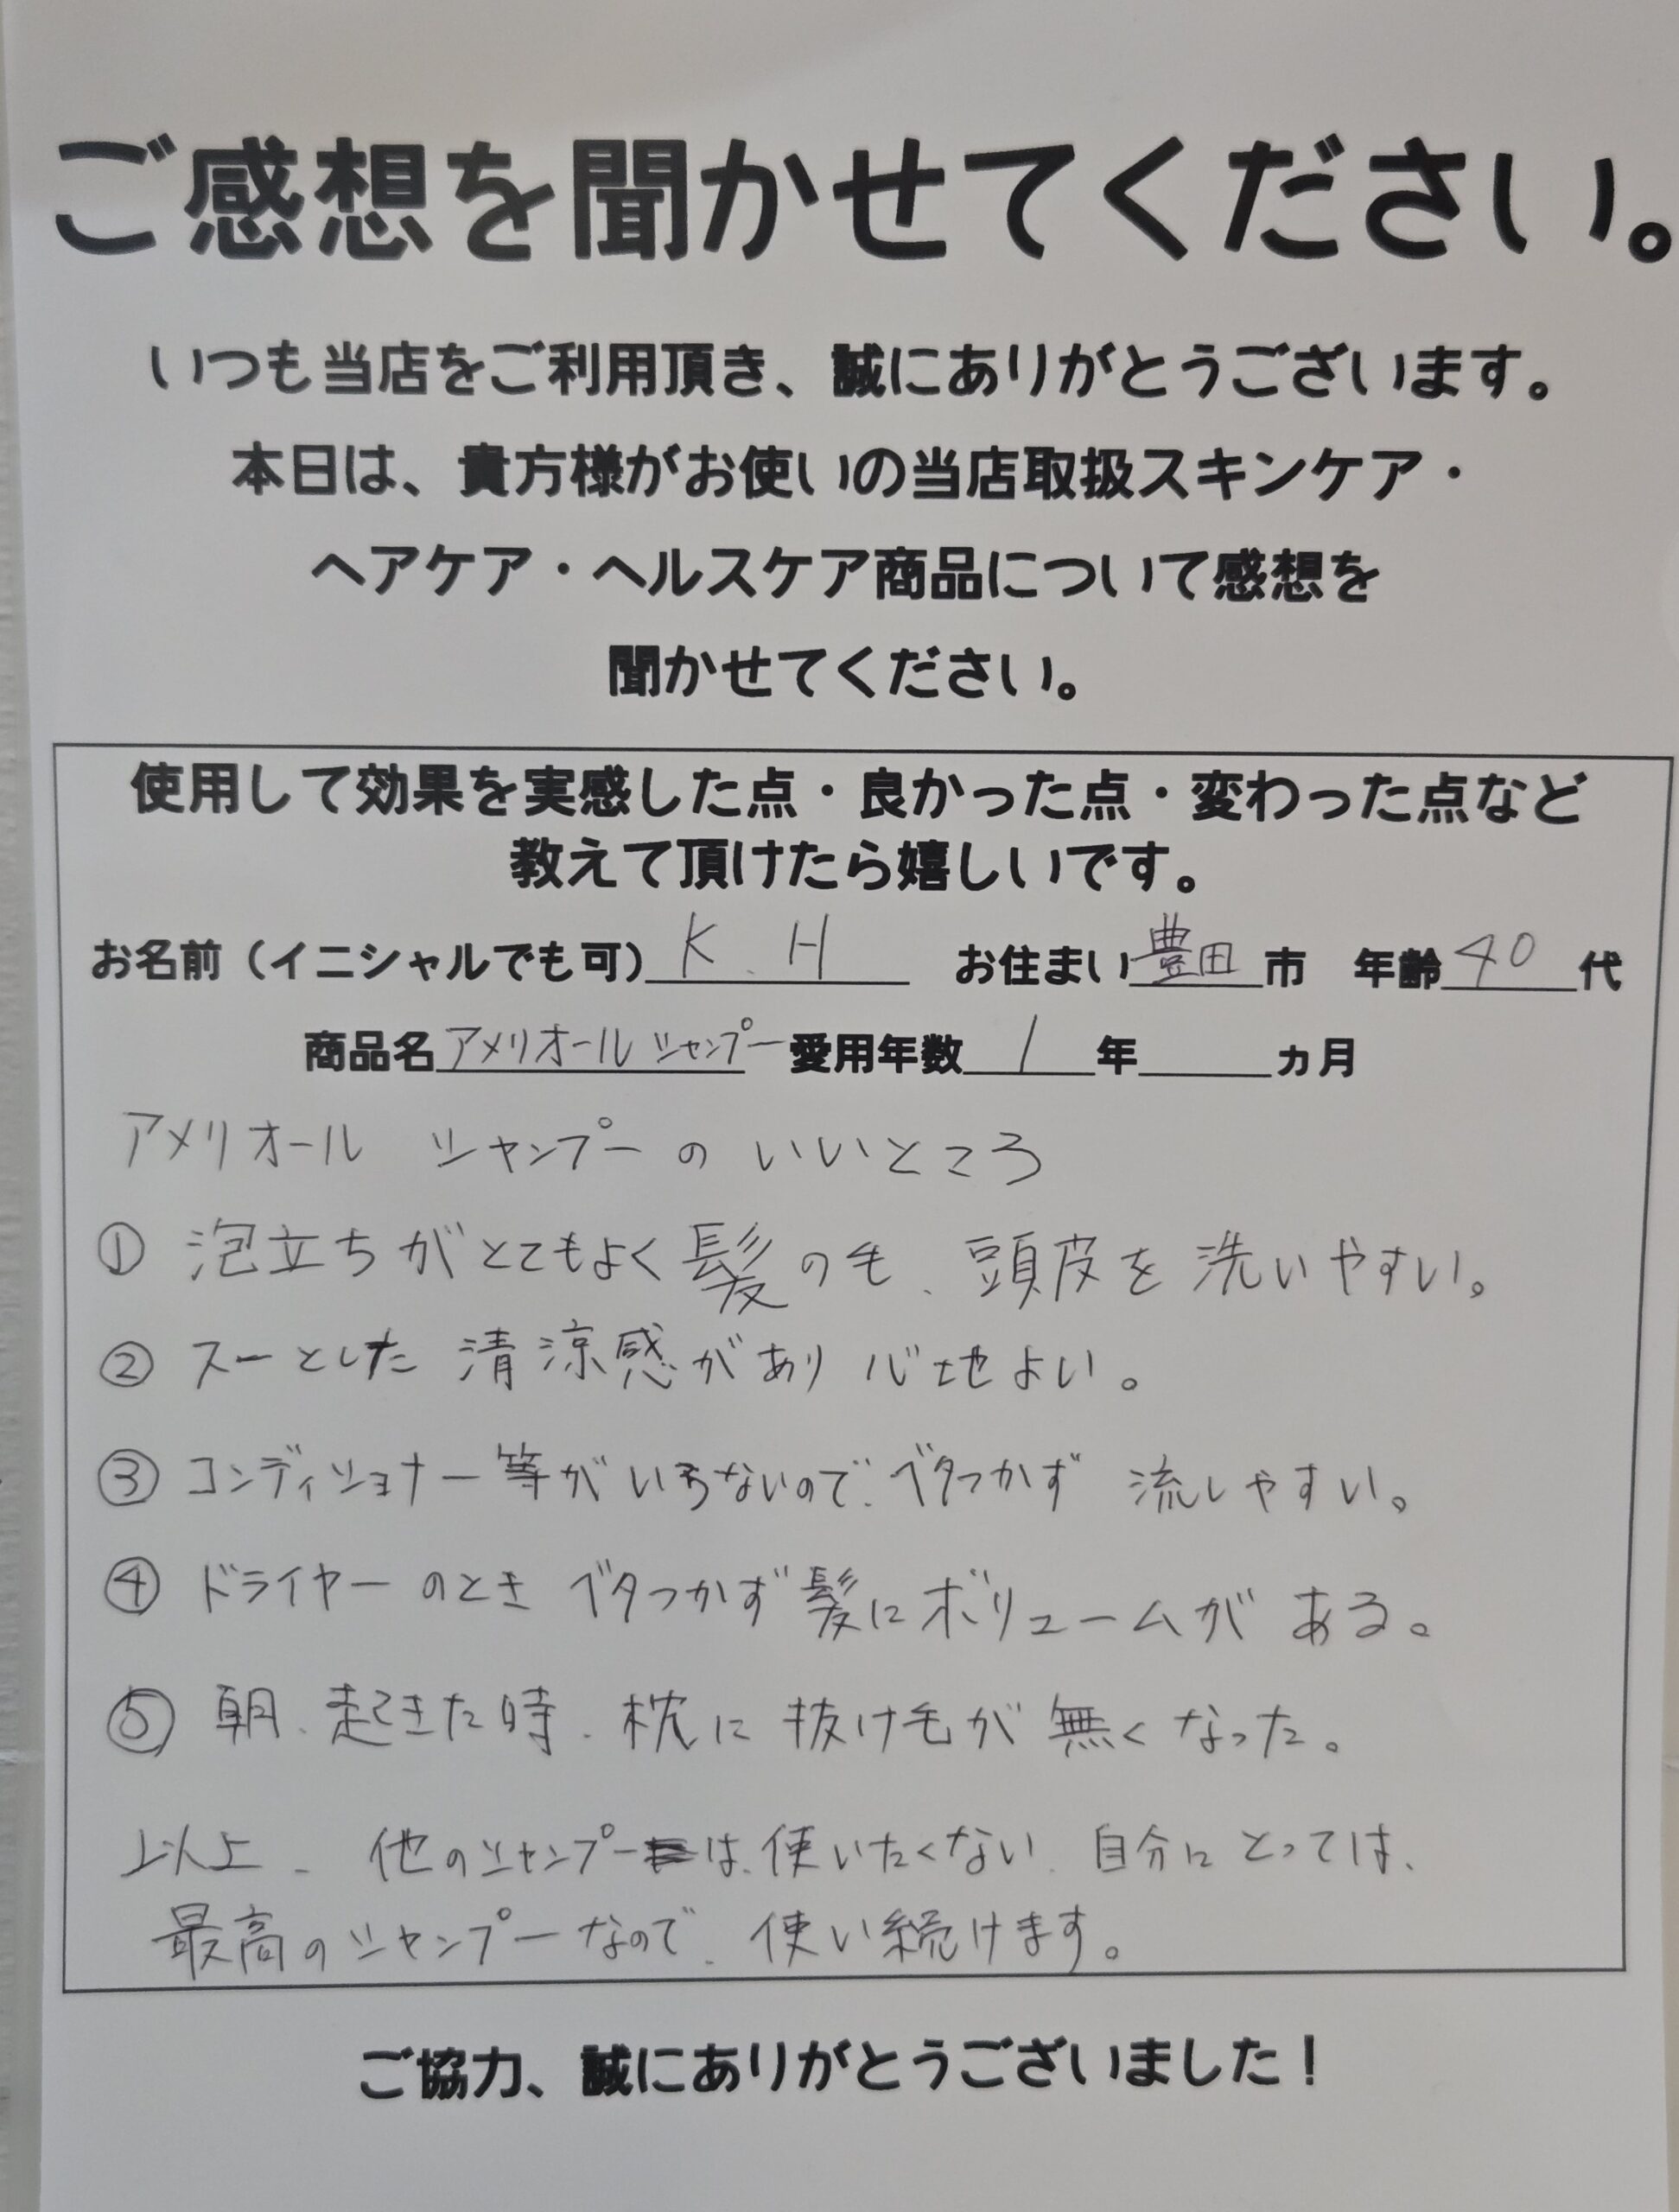 ご感想を聞かせてください。
いつも当店をご利用頂き、誠にありがとうございます。
本日は、貴方様がお使いの当店取扱スキンケア・
ヘアケア・ヘルスケア商品について感想を
聞かせてください。
使用して効果を実感した点・良かった点・変わった点など
教えて頂けたら嬉しいです。
お名前（イニシャルでも可） K.H お住まい 豊田 市 年齢 40 代
商品名 アメリオール シャンプー 愛用年数 1 年 ヵ月
アメリオール シャンプーの いいところ
① 泡立ちがとてもよく髪の毛、頭皮を洗いやすい。
② スーとした 清涼感があり 心地よい。
③ コンディショナー等がいらないので、ベタつかず 流しやすい。
④ ドライヤーのとき ベタつかず髪にボリュームがある。
⑤ 朝、起きた時、枕に抜け毛が無くなった。
以上、他のシャンプーは、使いたくない、自分にとっては、
最高のシャンプーなので、使い続けます。
ご協力、誠にありがとうございました！